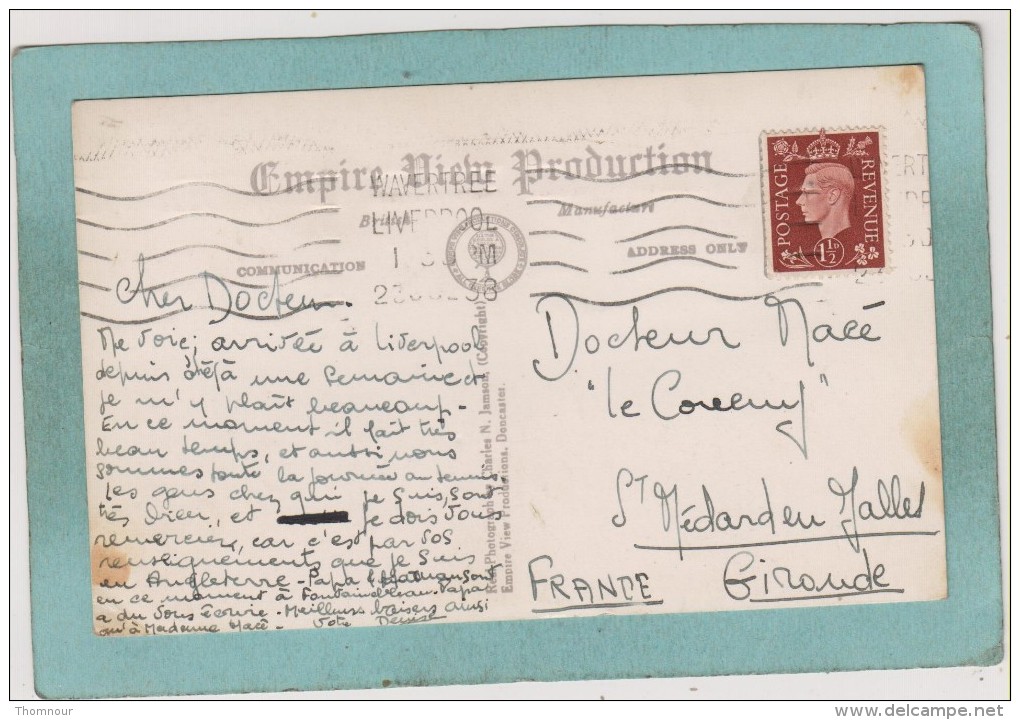 Empire View Production
British Manufacture
WAVERTREE
LIVERPOOL
COMMUNICATION
ADDRESS ONLY
POSTAGE REVENUE
1½D
Cher Docteur.
Me voici arrivée à Liverpool
depuis déjà une semaine et
je m'y plaît beaucoup -
En ce moment il fait très
beau temps, et aussi nous
sommes toute la journée au tennis.
Les gens chez qui je suis, sont
très bien, et je dois vous
remercier, car c'est par vos
renseignements que je suis
en Angleterre - Papa et Maman sont
en ce moment à Fontainebleau. Papa
a du vous écrire - Meilleurs baisers ainsi
qu'à Madame Macé - Votre Denise
Real Photograph by Charles N. Jamson, (Copyright)
Empire View Productions, Doncaster.
Docteur Macé
"Le"
St Médard en Jalles
FRANCE Gironde
Thomnour
delcampe.net